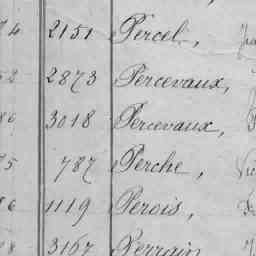 74 2151 Percel,
52 2873 Percevaux,
86 3018 Percevaux,
75 787 Perche,
56 1119 Perois,
08 3167 Perrain